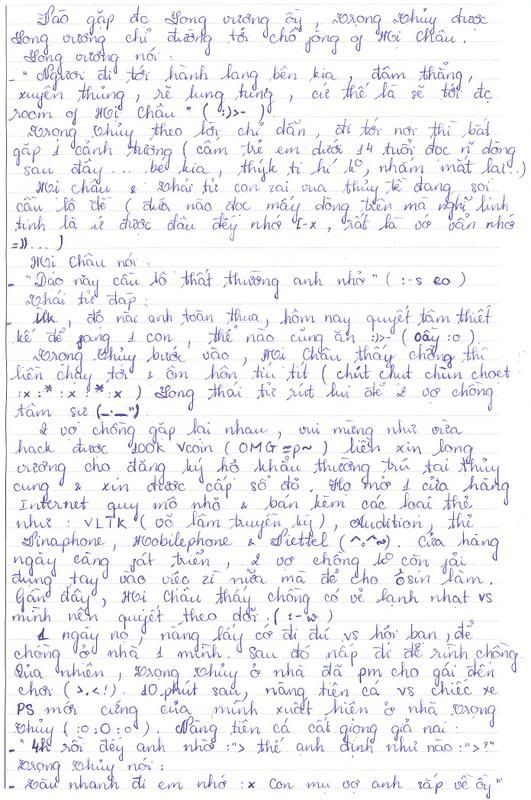 Sao gặp đc Long vương ồy, Trọng Thủy được
Long vương chỉ đường tới chỗ jống of Mị Châu.
Long vương nói:
- "Ngươi đi tới hành lang bên kia, đâm thẳng,
xuyên thủng, rẽ lung tung, cứ thế là sẽ tới đc
room of Mị Châu" ( :)>- )
Trọng Thủy theo lời chỉ dẫn, đi tới nơi thì bắt
gặp 1 cảnh tượng ( cấm trẻ em dưới 14 tuổi đọc ~ dòng
sau đây ... bé kia, thýk ti hí k°, nhắm mắt lại..)
Mị Châu & thái tử con zai vua thủy tề đang soi
cầu lô đề ( đứa nào đọc mấy dòng trên mà nghĩ linh
tinh là ứ được đâu đếy nhớ [-x , rất là vớ vẩn nhớ
=)) ... )
Mị Châu nói:
- "Dạo này cầu lô thất thường anh nhở" ( :-s eo )
Thái tử đáp:
- Uk, độ nài anh toàn thua, hôm nay quyết tâm thiết
kế để jang 1 con, thế nào cũng ăn :)>- ( Oầy :o )
Trọng Thủy bước vào, Mị Châu thấy chồng thì
liền chạy tới & ôm hôn tíu tít ( chút chụt chùn choẹt
:x :* :x :* :x ) Long thái tử rút lui để 2 vợ chồng
tâm sự (_._").
2 vợ chồng gặp lại nhau, vui mừng như vừa
hack được 100k Vcoin ( OMG =p~ ) liền xin long
vương cho đăng ký hộ khẩu thường trú tại thủy
cung & xin được cấp sổ đỏ. Họ mở 1 cửa hàng
Internet quy mô nhỏ & bán kèm các loại thẻ
như : VLTK ( võ lâm truyền kỳ ), Audition, thẻ
Vinaphone, Mobilephone & Viettel ( ^.^~ ). Cửa hàng
ngày càng fát triển, 2 vợ chồng k° còn fải
dụng tay vào việc zì nữa mà để cho ôsin làm.
Gần đây, Mị Châu thấy chồng có vẻ lạnh nhạt vs
mình nên quyết theo dõi. ( :-w )
1 ngày nọ, nàng lấy cớ đi dú vs hội bạn, để
chồng ở nhà 1 mình. Sau đó nấp đi để rình chồng.
Quả nhiên, Trọng Thủy ở nhà đã pm cho gái đến
chơi ( >.<! ). 10 phút sau, nàng tiên cá vs chiếc xe
PS mới cứng của mình xuất hiện ở nhà Trọng
Thủy ( :o :O :o ). Nàng tiên cá cất giọng giả nai :
- "4h rồi đếy anh nhở :"> thế anh định như nào :">?"
Trọng Thủy nói:
- Vầu nhanh đi em nhớ :x Con mụ vợ anh sắp về ồy"